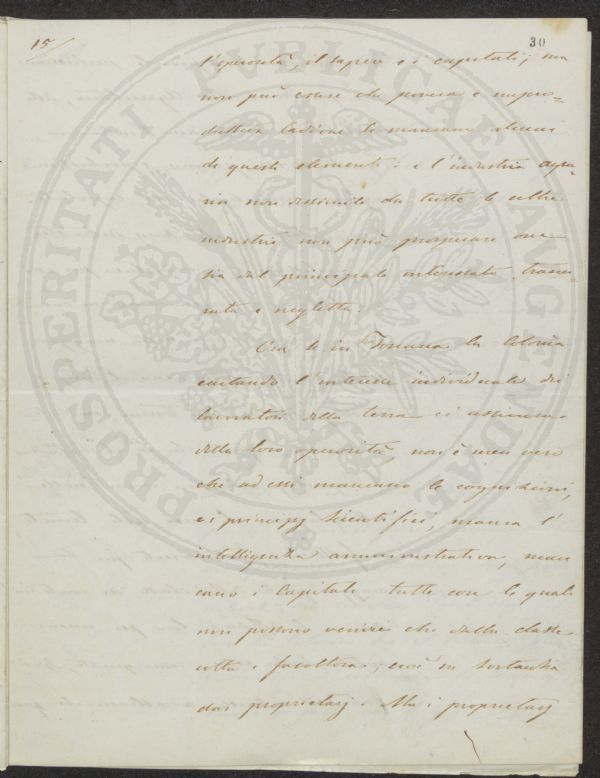 15/
30
l'operosità, il sapere e i capitali; ma
non può essere che povera e impro=
duttiva laddove le mancano alcuni
di questi elementi: e l'industria agra=
ria non dissimile da tutte le altre
industrie non può prosperare ove
sia dal principale interessato trascu=
rata e negletta.
Ora se in Toscana la Colonia
eccitando l'interesse individuale dei
lavoratori della terra ci assicura
della loro operosità, non è men vero
che ad essi mancano le cognizioni,
e i principj scientifici, manca l'
intelligenza amministrativa, man
cano i Capitali tutte cose le quali
non possono venire che dalla classe
colta e facoltosa, cioè in sostanza
dai proprietarj. Ma i proprietarj
PROSPERITATI PVBLICAE AVGENDAE